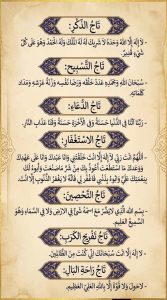 تَاجُ الذِّكْرِ:
- لا إِلَهَ إِلَّا اللَّهُ وَحْدَهُ لَا شَرِيكَ لَهُ لَهُ الْمُلْكُ وَلَهُ الْحَمْدُ وَهُوَ عَلَى كُلِّ
شَيْءٍ قَدِيرٌ.
تَاجُ التَّسْبِيحِ:
- سُبْحَانَ اللَّهِ وَبِحَمْدِهِ عَدَدَ خَلْقِهِ وَرِضَا نَفْسِهِ وَزِنَةَ عَرْشِهِ وَمِدَادَ
كَلِمَاتِهِ.
تَاجُ الدُّعَاءِ:
- رَبَّنَا آتِنَا فِي الدُّنْيَا حَسَنَةً وَفِي الْآخِرَةِ حَسَنَةً وَقِنَا عَذَابَ النَّارِ.
تَاجُ الاسْتِغْفَارِ:
- اللَّهُمَّ أَنْتَ رَبِّي لَا إِلَهَ إِلَّا أَنْتَ خَلَقْتَنِي وَأَنَا عَبْدُكَ وَأَنَا عَلَى عَهْدِكَ
وَوَعْدِكَ مَا اسْتَطَعْتُ أَعُوذُ بِكَ مِنْ شَرِّ مَا صَنَعْتُ وَأَبُوءُ لَكَ
بِنِعْمَتِكَ عَلَيَّ وَأَبُوءُ بِذَنْبِي فَاغْفِرْ لِي فَإِنَّهُ لَا يَغْفِرُ الذُّنُوبَ إِلَّا أَنْتَ
تَاجُ التَّحْصِينِ:
- بِسْمِ اللَّهِ الَّذِي لَا يَضُرُّ مَعَ اسْمِهِ شَيْءٌ فِي الأَرْضِ وَلَا فِي السَّمَاءِ وَهُوَ
السَّمِيعُ العَلِيمُ.
تَاجُ تَفْرِيجِ الْكَرْبِ:
- لا إِلَهَ إِلَّا أَنْتَ سُبْحَانَكَ إِنِّي كُنْتُ مِنَ الظَّالِمِينَ.
تَاجُ رَاحَةِ البَالِ:
- لا حَوْلَ وَلَا قُوَّةَ إِلَّا بِاللَّهِ العَلِيِّ العَظِيمِ.